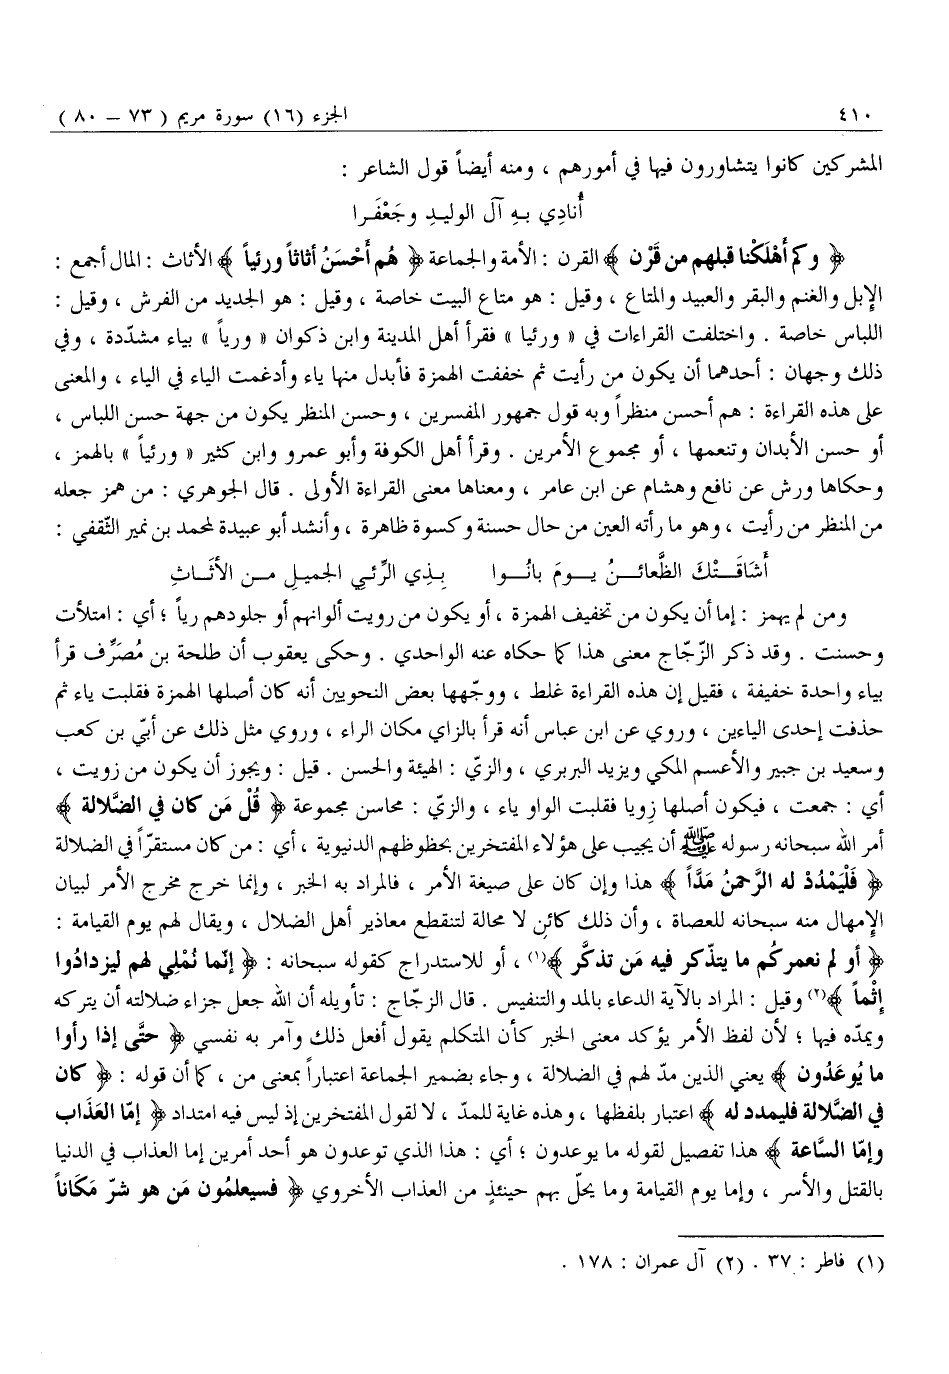 ٤١٠ الجزء (١٦) سورة مريم ( ٧٣ – ٨٠ )
المشركين كانوا يتشاورون فيها في أمورهم ، ومنه أيضاً قول الشاعر :
أُنادِي بـهِ آلَ الوليـدِ وجَعْفَـرا
﴿ وكم أَهْلَكْنا قبلهم من قَرْن ﴾ القرن : الأمة والجماعة ﴿ هُم أَحْسَنُ أثاثاً ورئياً ﴾ الأثاث : المال أجمع :
الإِبل والغنم والبقر والعبيد والمتاع ، وقيل : هو متاع البيت خاصة ، وقيل : هو الجديد من الفرش ، وقيل :
اللباس خاصة . واختلفت القراءات في « ورئيا » فقرأ أهل المدينة وابن ذكوان « ورياً » بياء مشدّدة ، وفي
ذلك وجهان : أحدهما أن يكون من رأيت ثم خففت الهمزة فأبدل منها ياء وأدغمت الياء في الياء ، والمعنى
على هذه القراءة : هم أحسن منظراً وبه قول جمهور المفسرين ، وحسن المنظر يكون من جهة حسن اللباس ،
أو حسن الأبدان وتنعمها ، أو مجموع الأمرين . وقرأ أهل الكوفة وأبو عمرو وابن كثير « ورئياً » بالهمز ،
وحكاها ورش عن نافع وهشام عن ابن عامر ، ومعناها معنى القراءة الأولى . قال الجوهري : من همز جعله
من المنظر من رأيت ، وهو ما رأته العين من حال حسنة وكسوة ظاهرة ، وأنشد أبو عبيدة لمحمد بن نمير الثّقفي :
أَشَاقَـتْكَ الظَّعائـنُ يـومَ بانُـوا بِـذي الرِّئيِ الجميلِ مـن الأثَـاثِ
ومن لم يهمز : إما أن يكون من تخفيف الهمزة ، أو يكون من رويت ألوانهم أو جلودهم رياً ؛ أي : امتلأت
وحسنت . وقد ذكر الزّجّاج معنى هذا كما حكاه عنه الواحدي . وحكى يعقوب أن طلحة بن مُصَرِّف قرأ
بياء واحدة خفيفة ، فقيل إن هذه القراءة غلط ، ووجّهها بعض النحويين أنه كان أصلها الهمزة فقلبت ياء ثم
حذفت إحدى الياءين ، وروي عن ابن عباس أنه قرأ بالزاي مكان الراء ، وروي مثل ذلك عن أبيّ بن كعب
وسعيد بن جبير والأعسم المكي ويزيد البربري ، والزيّ : الهيئة والحسن . قيل : ويجوز أن يكون من زويت ،
أي : جمعت ، فيكون أصلها زويا فقلبت الواو ياء ، والزيّ : محاسن مجموعة ﴿ قُلْ مَن كان في الضَّلالة ﴾
أمر الله سبحانه رسوله ﷺ أن يجيب على هؤلاء المفتخرين بحظوظهم الدنيوية ، أي : من كان مستقرّاً في الضلالة
﴿ فَلْيَمْدُدْ له الرَّحمنُ مَدَّاً ﴾ هذا وإن كان على صيغة الأمر ، فالمراد به الخبر ، وإنما خرج مخرج الأمر لبيان
الإِمهال منه سبحانه للعصاة ، وأن ذلك كائن لا محالة لتنقطع معاذير أهل الضلال ، ويقال لهم يوم القيامة :
﴿ أو لم نعمركُم ما يتذّكر فيه مَن تذكَّر ﴾(١) ، أو للاستدراج كقوله سبحانه : ﴿ إنّما نُمْلِي لهم ليزدادُوا
إثْماً ﴾(٢) وقيل : المراد بالآية الدعاء بالمد والتنفيس . قال الزجّاج : تأويله أن الله جعل جزاء ضلالته أن يتركه
ويمدّه فيها ؛ لأن لفظ الأمر يؤكد معنى الخبر كأن المتكلم يقول أفعل ذلك وآمر به نفسي ﴿ حتَّى إذا رأوا
ما يُوعَدُون ﴾ يعني الذين مدّ لهم في الضلالة ، وجاء بضمير الجماعة اعتباراً بمعنى من ، كما أن قوله : ﴿ كان
في الضَّلالة فليمدد له ﴾ اعتبار بلفظها ، وهذه غاية للمدّ ، لا لقول المفتخرين إذ ليس فيه امتداد ﴿ إمّا العَذَاب
وإمّا السَّاعة ﴾ هذا تفصيل لقوله ما يوعدون ؛ أي : هذا الذي توعدون هو أحد أمرين إما العذاب في الدنيا
بالقتل والأسر ، وإما يوم القيامة وما يحلّ بهم حينئذٍ من العذاب الأخروي ﴿ فسيعلمُون مَن هو شرّ مَكَاناً
(١) فاطر : ٣٧ . (٢) آل عمران : ١٧٨ .